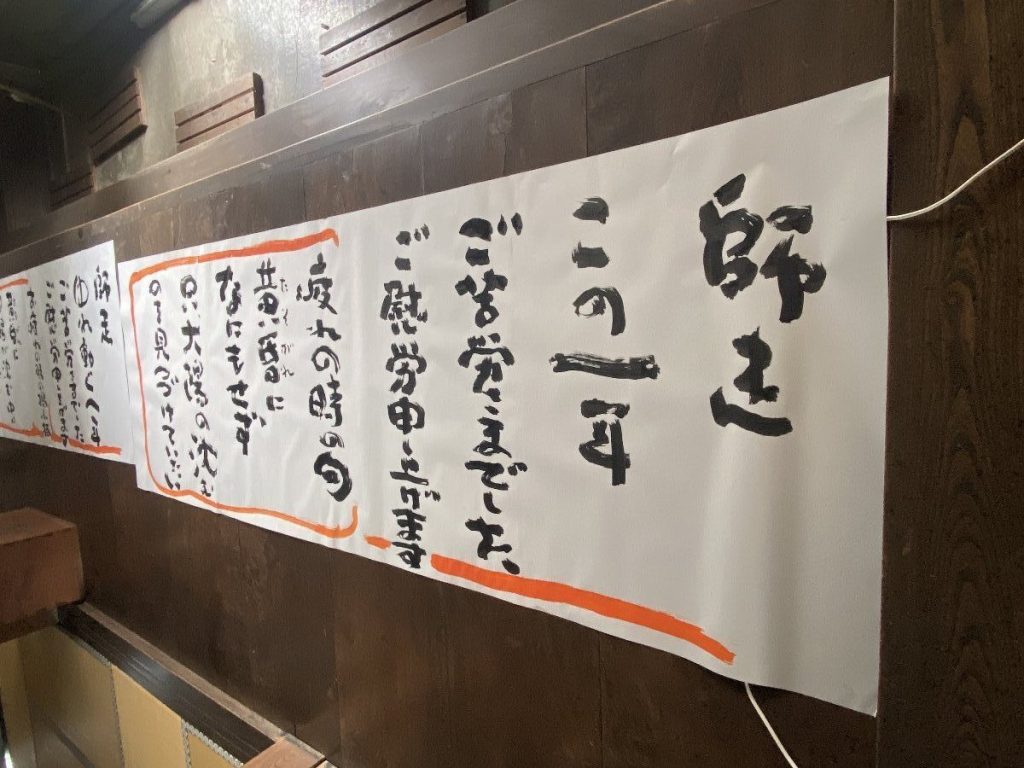 師走
この一年
ご苦労さまでした、
ご慰労申し上げます
疲れの時の句
黄昏に
たそがれ
なにもせず
只、大陽の沈む
のを見つづけていたい
師走
ゆれ動く
ご苦労さまでした
ご慰労申し上げます